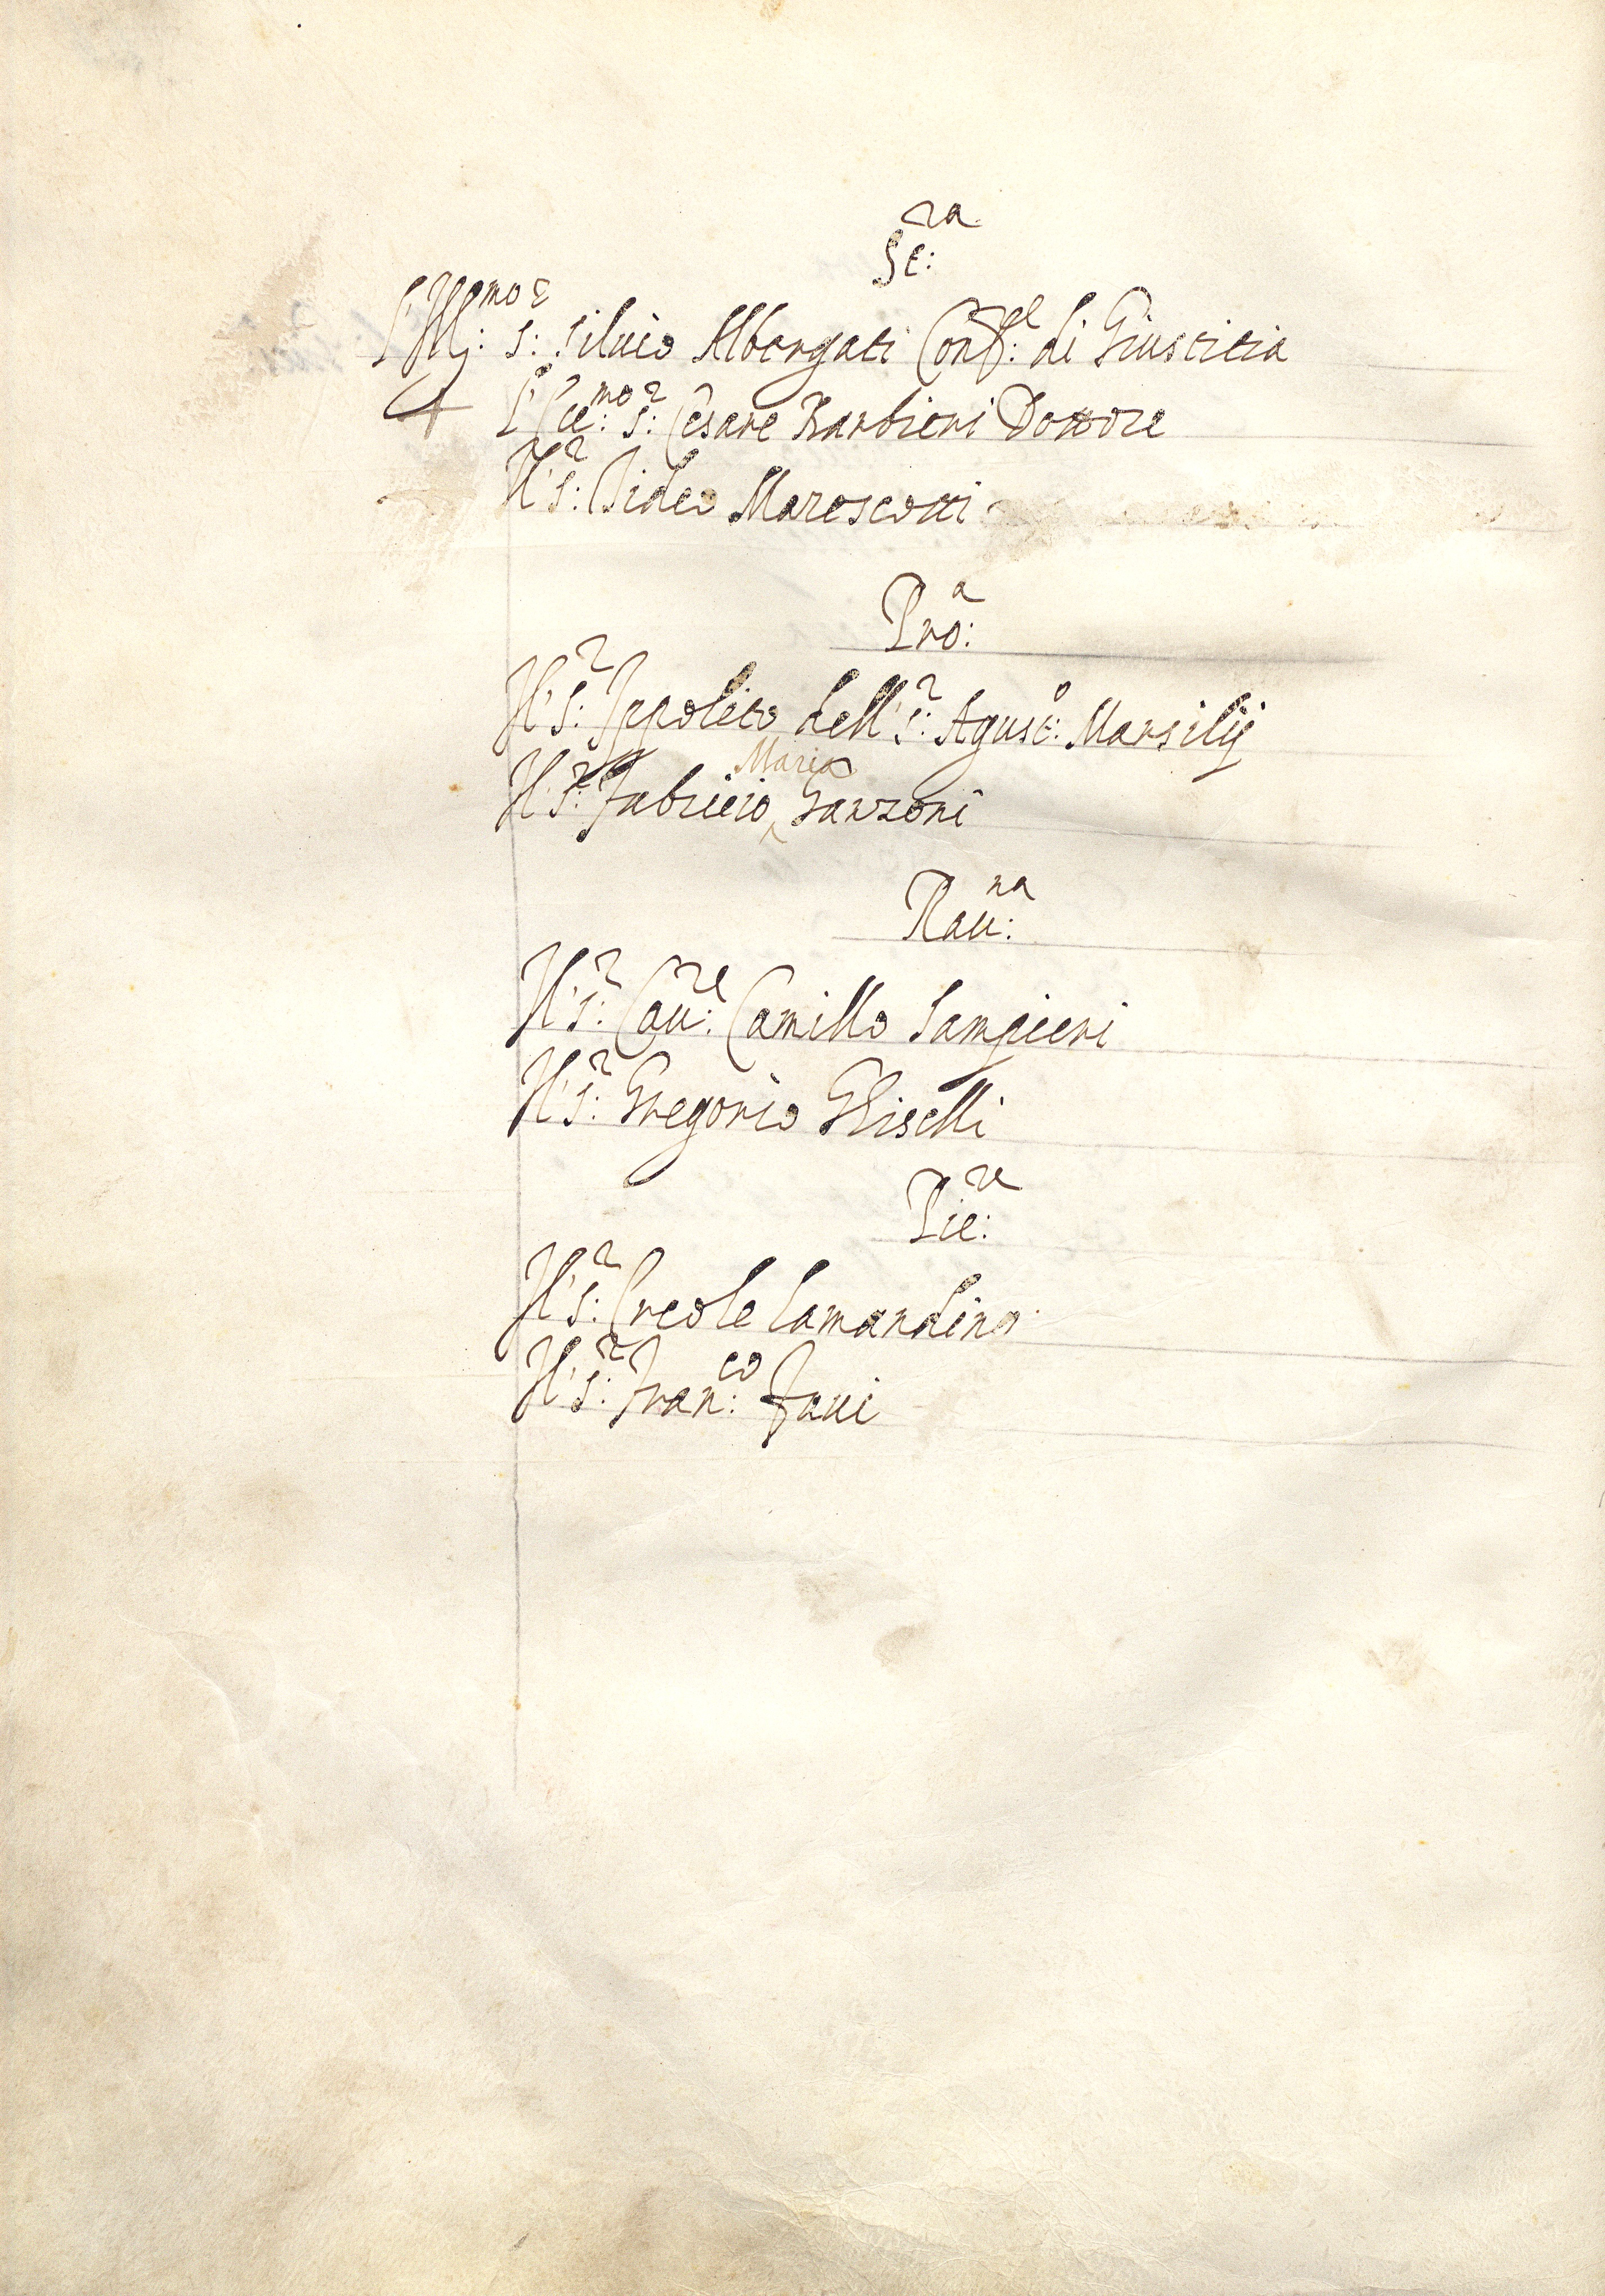 St:ra
L'Ill:mo S:r Siluio Albergati Conf:re di Giustitia
L'Ecc:mo S:r Cesare Barbieri Dottore
Il S:r Ercole Marescotti
Pro:a
Il S:r Ippolito dell S:r Agust:o Marsilij
Il S:r Fabricio Maria Garzoni
Rau:na
Il S:r Cau:re Camillo Sampieri
Il S:r Gregorio Ghiselli
Pie:re
Il S:r Ercole Lamandino
Il S:r Fran:co Faui